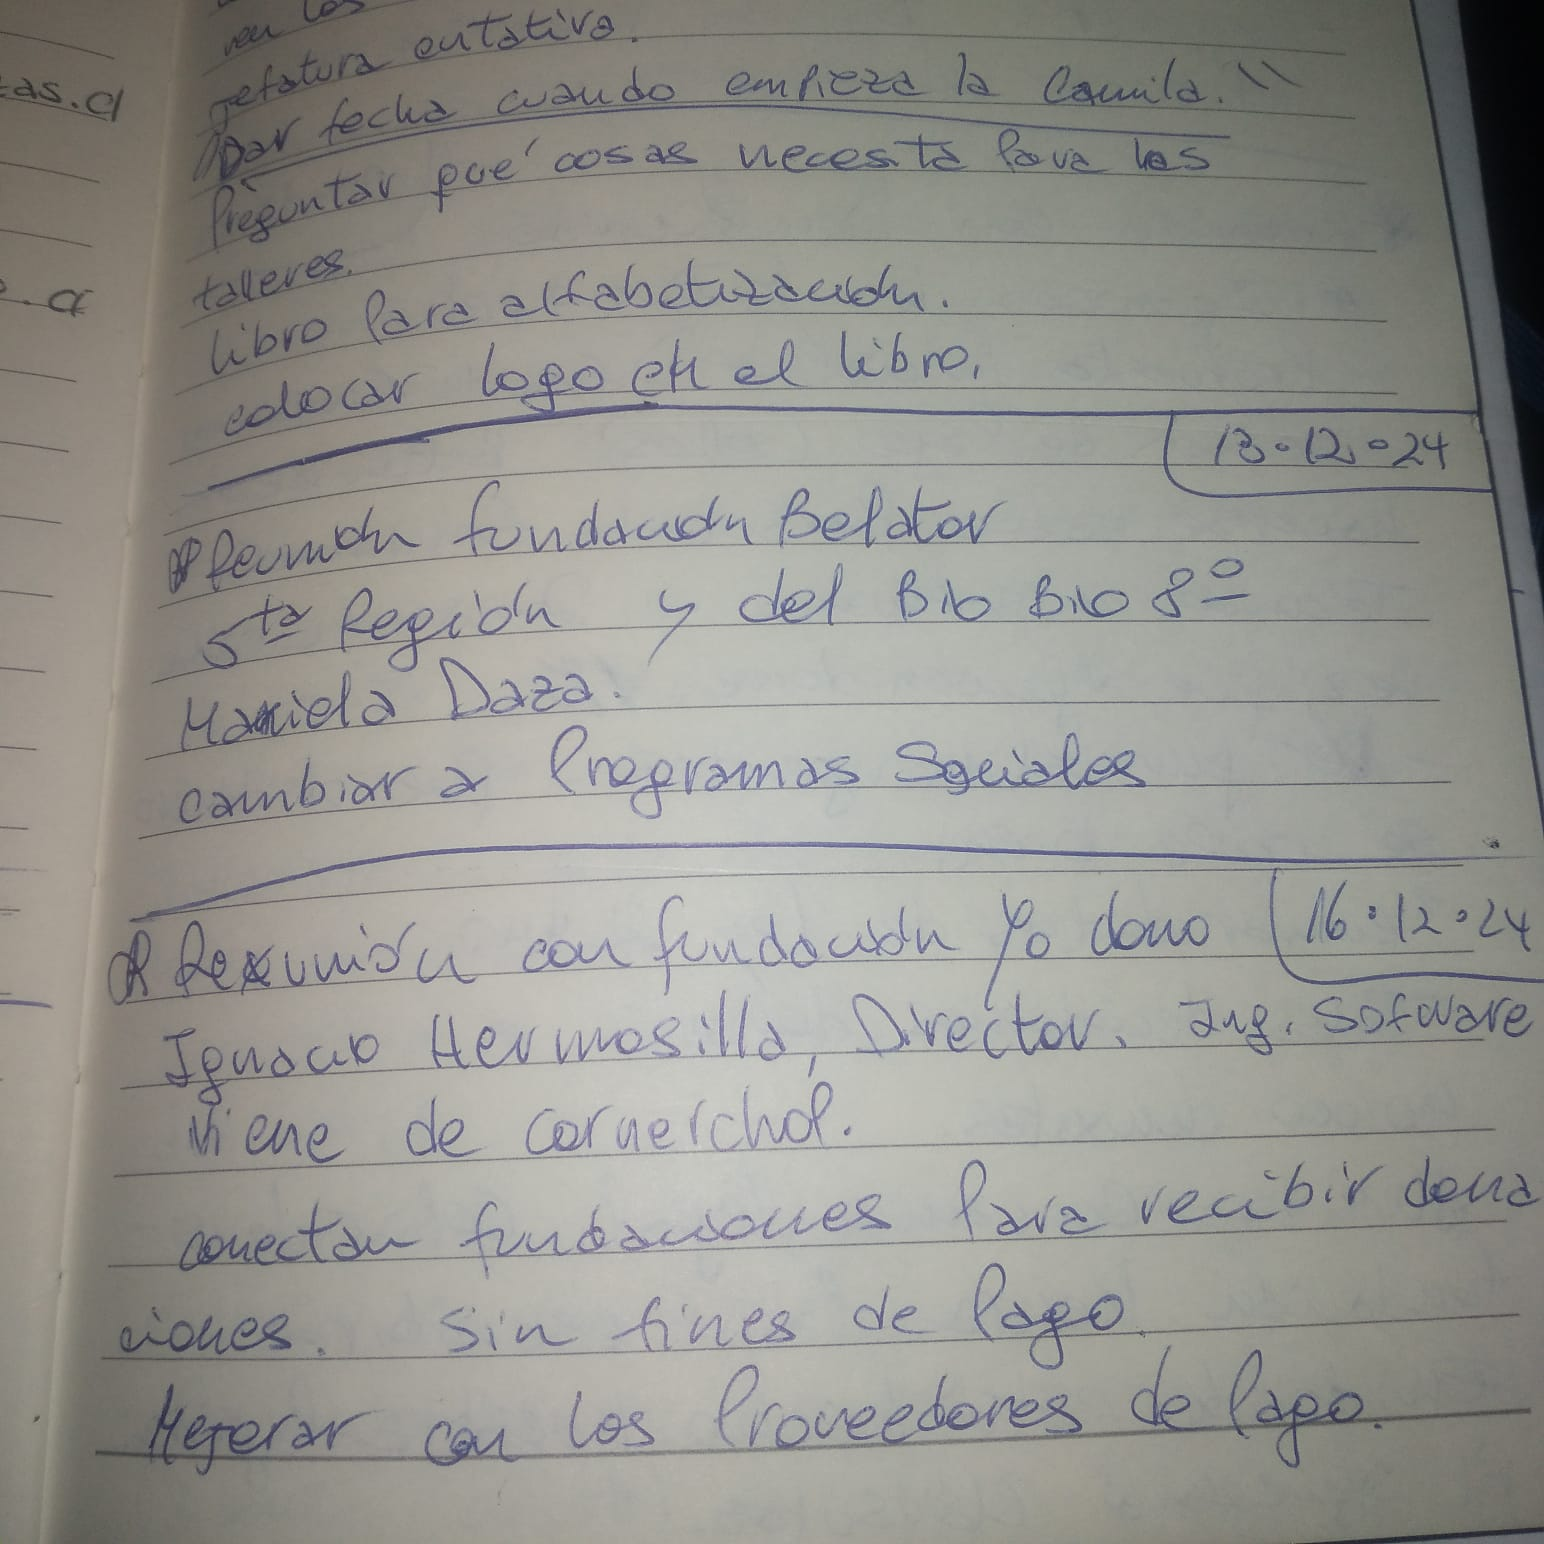 tas.cl
.cl
los
Jefatura entativa.
Dar fecha cuando empieza la Camila. \\
Preguntar qué cosas necesita para los
talleres.
libro para alfabetización.
colocar logo en el libro.
13-12-24
Reunión fundación Belator
5ta Región y del Bio Bio 8º
Mariela Daza.
cambiar a Programas Sociales
16.12.24
Reunión con fundación Yo dono
Ignacio Hermosilla, Director. Ing. Sofware
Viene de cornerchop.
conectan fundaciones para recibir dona
ciones. Sin fines de pago.
Mejorar con los Proveedores de pago.